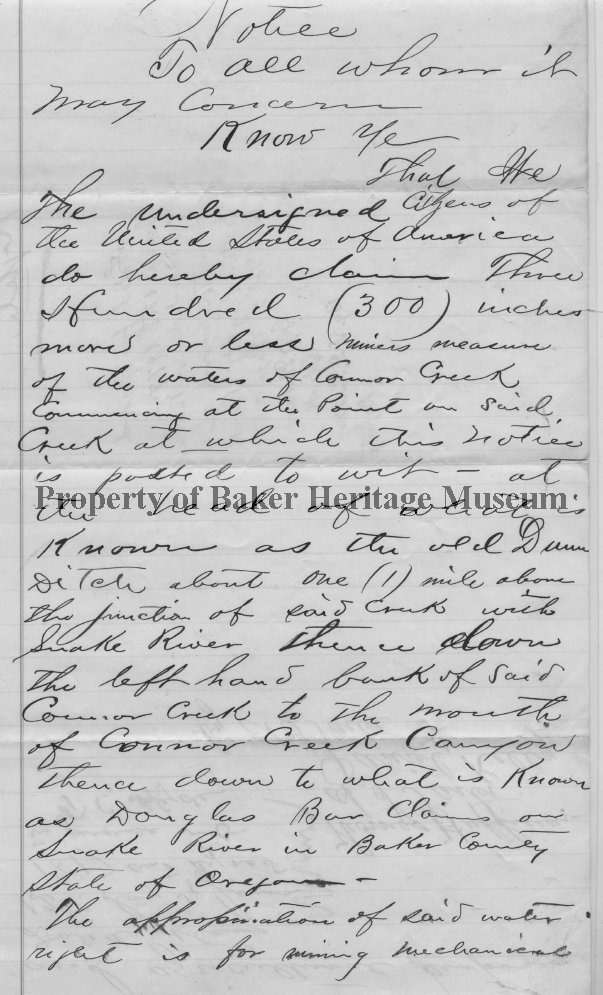 Notice
To all whom it
may Concern
Know Ye
That We
The undersigned Citizens of
the United States of America
do hereby claim Three
Hundred (300) inches
more or less miners measure
of the waters of Connor Creek
Commencing at the Point on said
Creek at which this notice
is posted to wit - at
Property of Baker Heritage Museum
the head of what is
Known as the old Dunn
Ditch about one (1) mile above
the junction of said Creek with
Snake River thence down
the left hand bank of said
Connor Creek to the mouth
of Connor Creek Canyon
thence down to what is Known
as Douglas Bar Claims on
Snake River in Baker County
State of Oregon -
The appropriation of said water
right is for mining mechanical